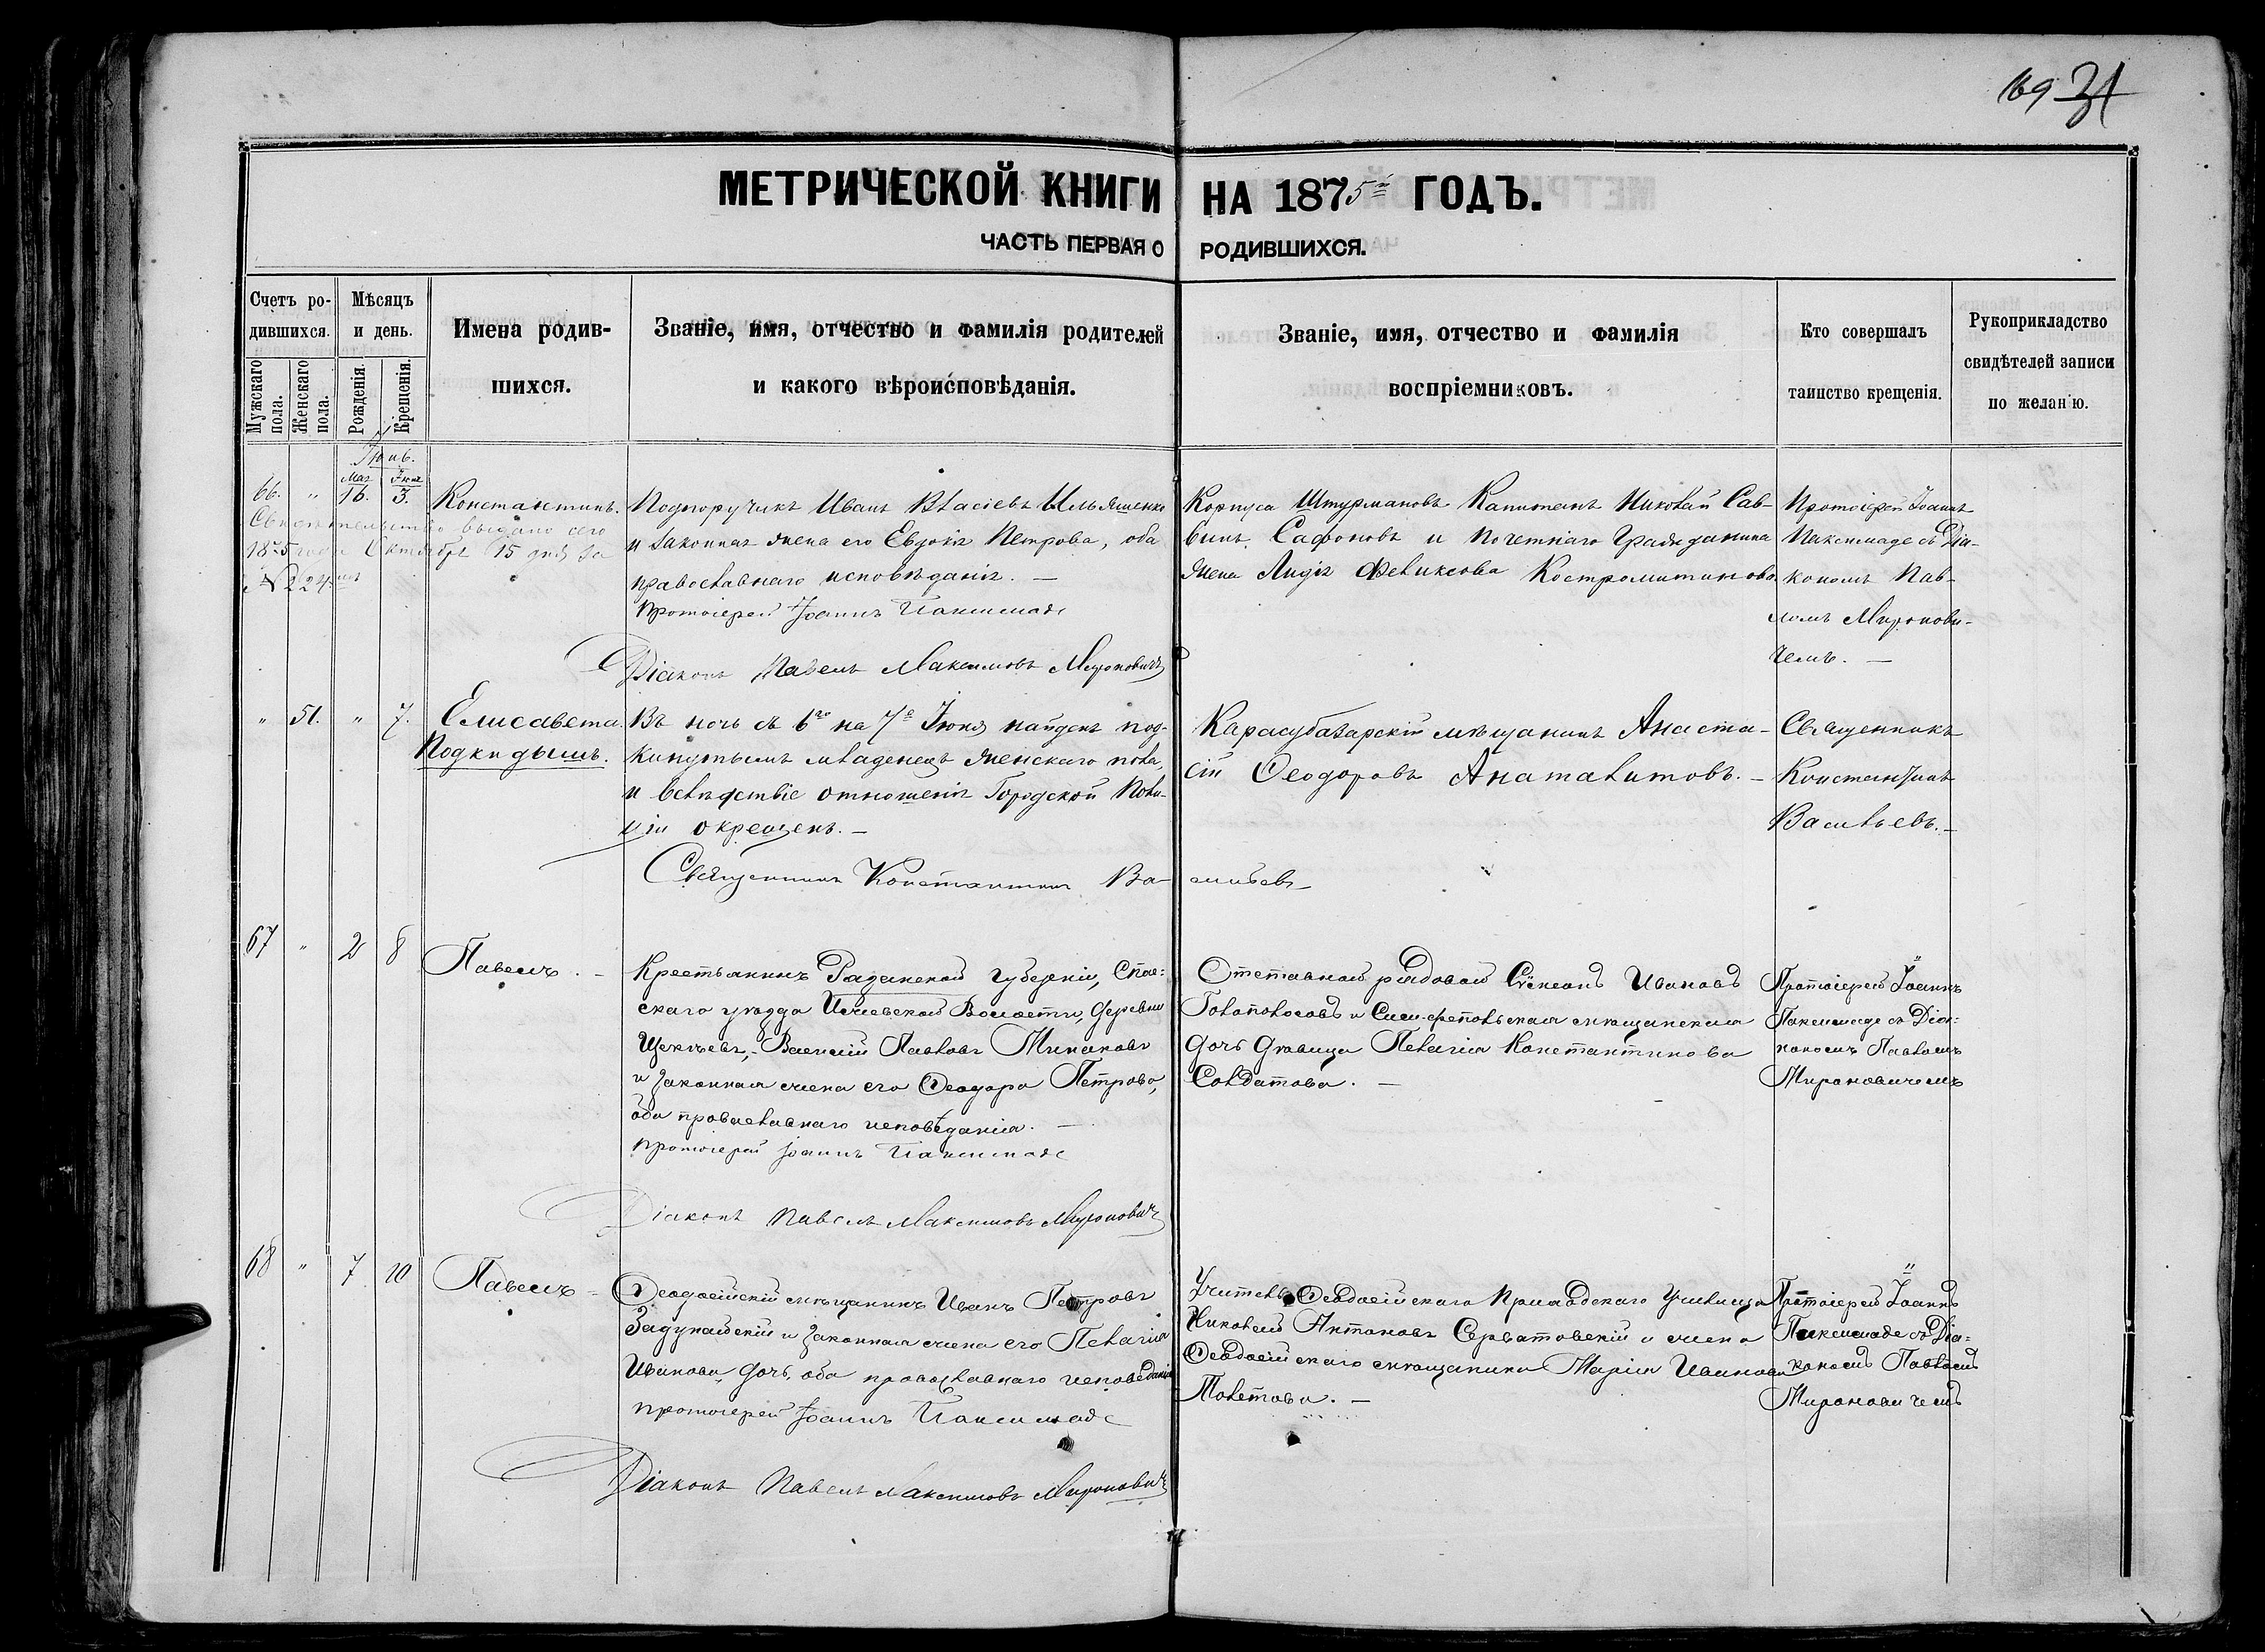 169 31
МЕТРИЧЕСКОЙ КНИГИ НА 1875й ГОДЪ.
ЧАСТЬ ПЕРВАЯ О РОДИВШИХСЯ.
Счетъ ро-
дившихся.
Мужскаго пола.
Женскаго пола.
Мѣсяцъ
и день.
Рожденія.
Крещенія.
Имена родив-
шихся.
Званіе, имя, отчество и фамилія родителей
и какого вѣроисповѣданія.
Званіе, имя, отчество и фамилія
воспріемниковъ.
Кто совершалъ
таинство крещенія.
Рукоприкладство
свидѣтелей записи
по желанію.
Іюнь.
Мая Іюня
66. " 16. 3.
Константинъ.
Свидѣтельство выдано сего
1875 года Октября 15 дня за
№ 224
Подпоручикъ Иванъ Власіевъ Ильяшенко
и законная жена его Евдокія Петрова, оба
православнаго исповѣданія. —
Протоіерей Іоаннъ Паксимаде
Діаконъ Павелъ Максимовъ Мироновичъ
Корпуса Штурмановъ Капитанъ Николай Сав-
винъ Сафоновъ и Почетнаго Гражданина
жена Лидія Феликсова Костромитинова
Протоіерей Іоаннъ
Паксимаде съ Діа-
кономъ Пав-
ломъ Миронови-
чемъ. —
" 51. " 7.
Елисавета
Подкидышъ.
Въ ночь съ 6го на 7е Іюня найденъ под-
кинутымъ младенецъ женскаго пола,
и вслѣдствіе отношенія Городской Поли-
ціи окрещенъ. —
Священникъ Константинъ Васильевъ
Карасубазарскій мѣщанинъ Анаста-
сій Ѳеодоровъ Анаталитовъ. —
Священникъ
Константинъ
Васильевъ. —
67 " 2 8
Павелъ. —
Крестьянинъ Рязанской губерніи, Спас=
скаго уѣзда Ижевской Волости, деревни
Василій Павловъ Минаковъ
и законная жена его Ѳеодора Петрова,
оба православнаго исповѣданія. —
Протоіерей Іоаннъ Паксимаде
Діаконъ Павелъ Максимовъ Мироновичъ
Отставной рядовой Сѵмеонъ Ивановъ
Голополосовъ и Симферопольская мѣщанская
дочь дѣвица Пелагія Константинова
Солдатова. —
Протоіерей Іоаннъ
Паксимаде съ Діа=
кономъ Павломъ
Мироновичемъ
68 " 7 10
Павелъ —
Ѳеодосійскій мѣщанинъ Иванъ Петровъ
Задунайскій и законная жена его Пелагія
Иванова дочь, оба православнаго исповѣданія
Протоіерей Іоаннъ Паксимаде
Діаконъ Павелъ Максимовъ Мироновичъ
Учитель Ѳеодосійскаго Приходскаго Училища
Николай Антоновъ Серватовскій и жена
Ѳеодосійскаго мѣщанина Марія Иванова
Полетова. —
Протоіерей Іоаннъ
Паксимаде съ Діа=
кономъ Павломъ
Мироновичемъ